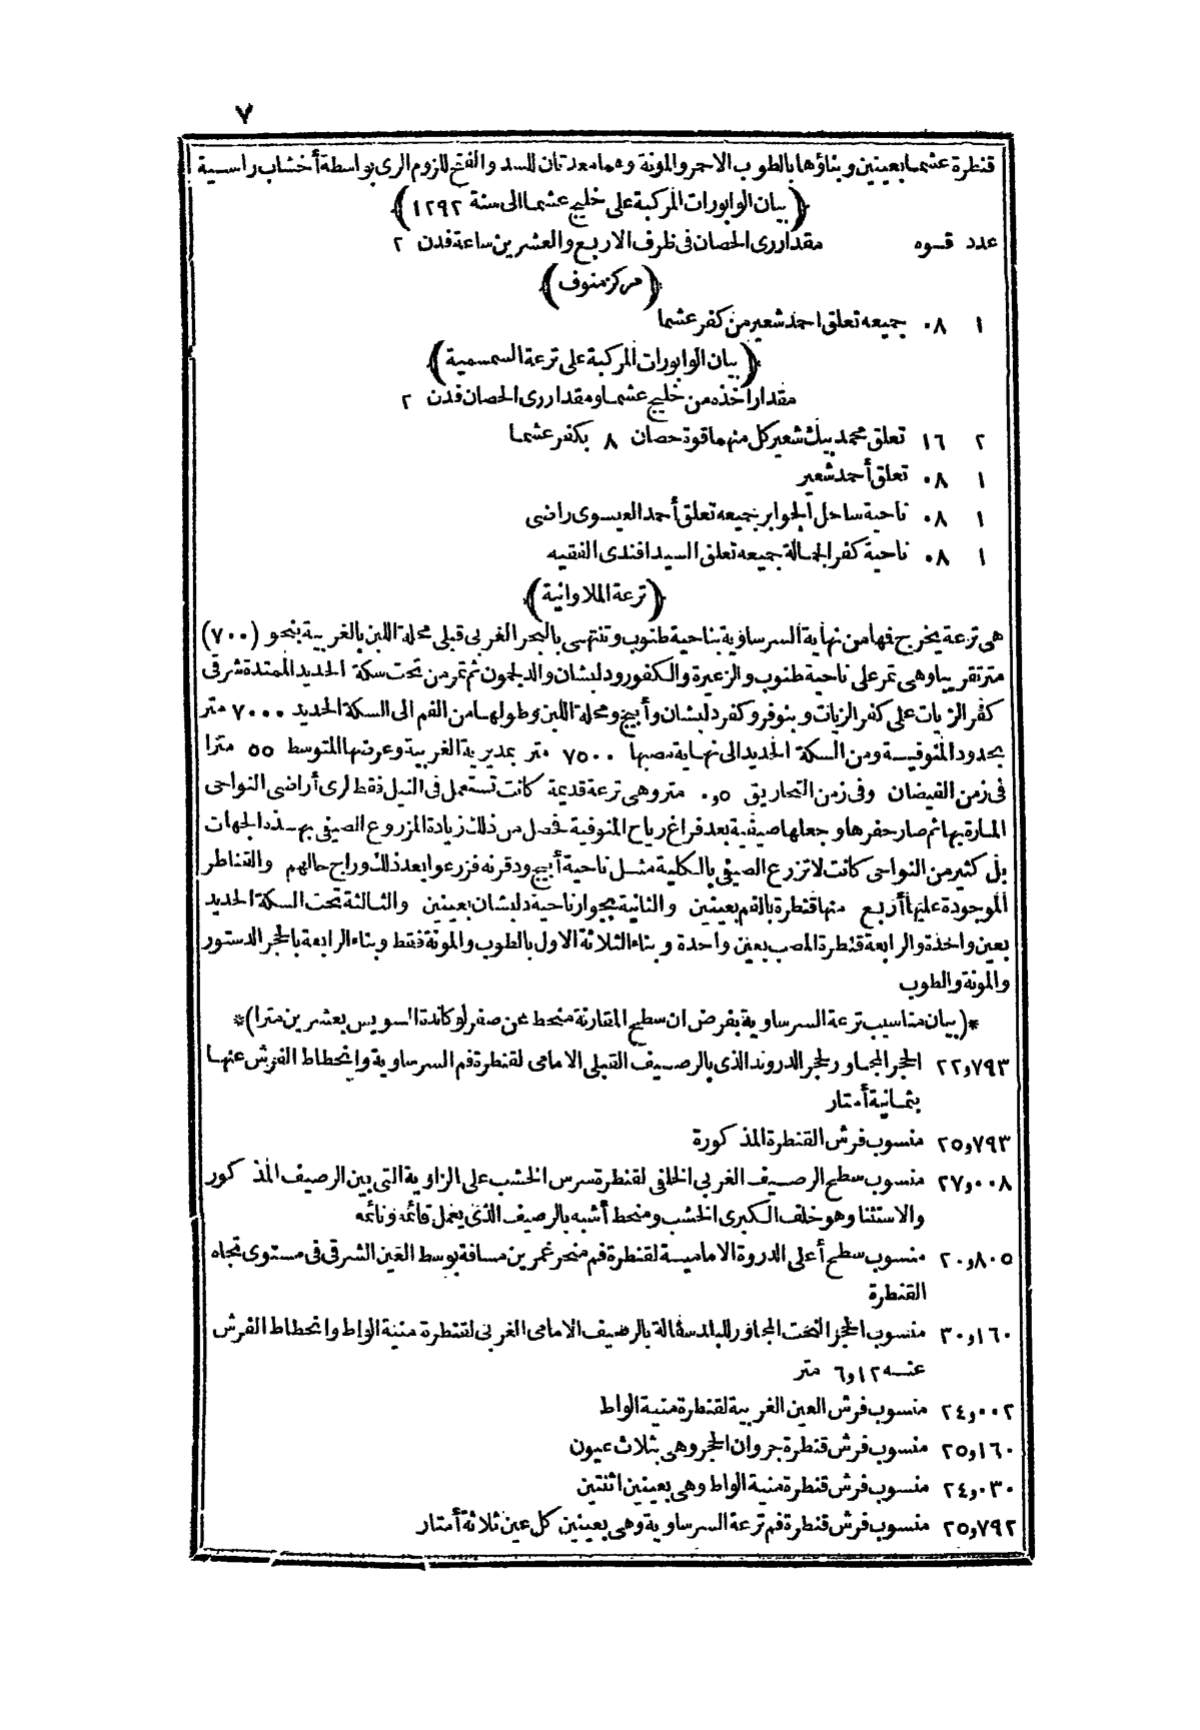 ٧
قنطرة عشما بعينين وبناؤها بالطوب الاحمر والمونة وهما معدتان للسد والفتح للزوم الرى بواسطة أخشاب راسية
(بيان الوابورات المركبة على خليج عشما الى سنة ١٢٩٢)
عدد قوه مقدار رى الحصان فى ظرف الاربع والعشرين ساعة فدن ٢
(مركز منوف)
١ ٠٨ جميعه تعلق احمد شعير من كفر عشما
(بيان الوابورات المركبة على ترعة السمسمية)
مقدار اخذه من خليج عشما ومقدار رى الحصان فدن ٢
٢ ١٦ تعلق محمد بيك شعير كل منهما قوة حصان ٨ بكفر عشما
١ ٠٨ تعلق أحمد شعير
١ ٠٨ ناحية ساحل الجوابر جميعه تعلق أحمد العيسوى راضى
١ ٠٨ ناحية كفر الجمالة جميعه تعلق السيد افندى الفقيه
(ترعة الملاوانية)
هى ترعة يخرج فها من نهاية السرساوية بناحية طنوب وتنتهى بالبحر الغربى قبلى محلة اللبن بالغربية بنحو (٧٠٠)
متر تقريبا وهى تمر على ناحية طنوب والزعيرة والكفور ودلبشان والدلجمون ثم تمر من تحت سكة الحديد الممتدة شرقى
كفر الزيات على كفر الزيات وبنوفر وكفر دلبشان وأبيج ومحلة اللبن وطولها من الفم الى السكة الحديد ٧٠٠٠ متر
بحدود المنوفية ومن السكة الحديد الى نهاية مصبها ٧٥٠٠ متر بمديرية الغربية وعرضها المتوسط ٥٥ مترا
فى زمن الفيضان وفى زمن التحاريق ٠,٥ متر وهى ترعة قديمة كانت تستعمل فى النيل فقط لرى أراضى النواحى
المارة بها ثم صار حفرها وجعلها صيفية بعد فراغ رياح المنوفية فحصل من ذلك زيادة المزروع الصيفى بهذه الجهات
بل كثير من النواحى كانت لا تزرع الصيفى بالكلية مثل ناحية أبيج ودقرنه فزرعوا بعد ذلك وراج حالهم والقناطر
الموجودة عليها أربع منها قنطرة بالفم بعينين والثانية بجوار ناحية دلبشان بعينين والثالثة تحت السكة الحديد
بعين واحدة والرابعة قنطرة المصب بعين واحدة وبناء الثلاثة الاول بالطوب والمونة فقط وبناء الرابعة بالحجر الدستور
والمونة والطوب
*(بيان مناسيب ترعة السرساوية بفرض ان سطح المقارنة منحط عن صفر لوكاندة السويس بعشرين مترا)*
٢٢,٧٩٣ الحجر المجاور لحجر الدروند الذى بالرصيف القبلى الامامى لقنطرة فم السرساوية وانحطاط الفرش عنها
بثمانية أمتار
٢٥,٧٩٣ منسوب فرش القنطرة المذكورة
٢٧,٠٠٨ منسوب سطح الرصيف الغربى الخلفى لقنطرة سرس الخشب على الزاوية التى بين الرصيف المذكور
والاستنا وهو خلف الكبرى الخشب ومنحط أشبه بالرصيف الذى يعمل قائمه ونائمه
٢٠,٨٠٥ منسوب سطح أعلى الدروة الامامية لقنطرة فم منحر غمرين مسافة بوسط العين الشرقى فى مستوى تجاه
القنطرة
٣٠,١٦٠ منسوب الحجر النحت المجاور للبلدسقالة بالرصيف الامامى الغربى لقنطرة منية الواط وانحطاط الفرش
عنه ٦,١٢ متر
٢٤,٠٠٢ منسوب فرش العين الغربية لقنطرة منية الواط
٢٥,١٦٠ منسوب فرش قنطرة جروان الحجر وهى بثلاث عيون
٢٤,٠٣٠ منسوب فرش قنطرة منية الواط وهى بعينين اثنتين
٢٥,٧٩٢ منسوب فرش قنطرة فم ترعة السرساوية وهى بعينين كل عين ثلاثة أمتار